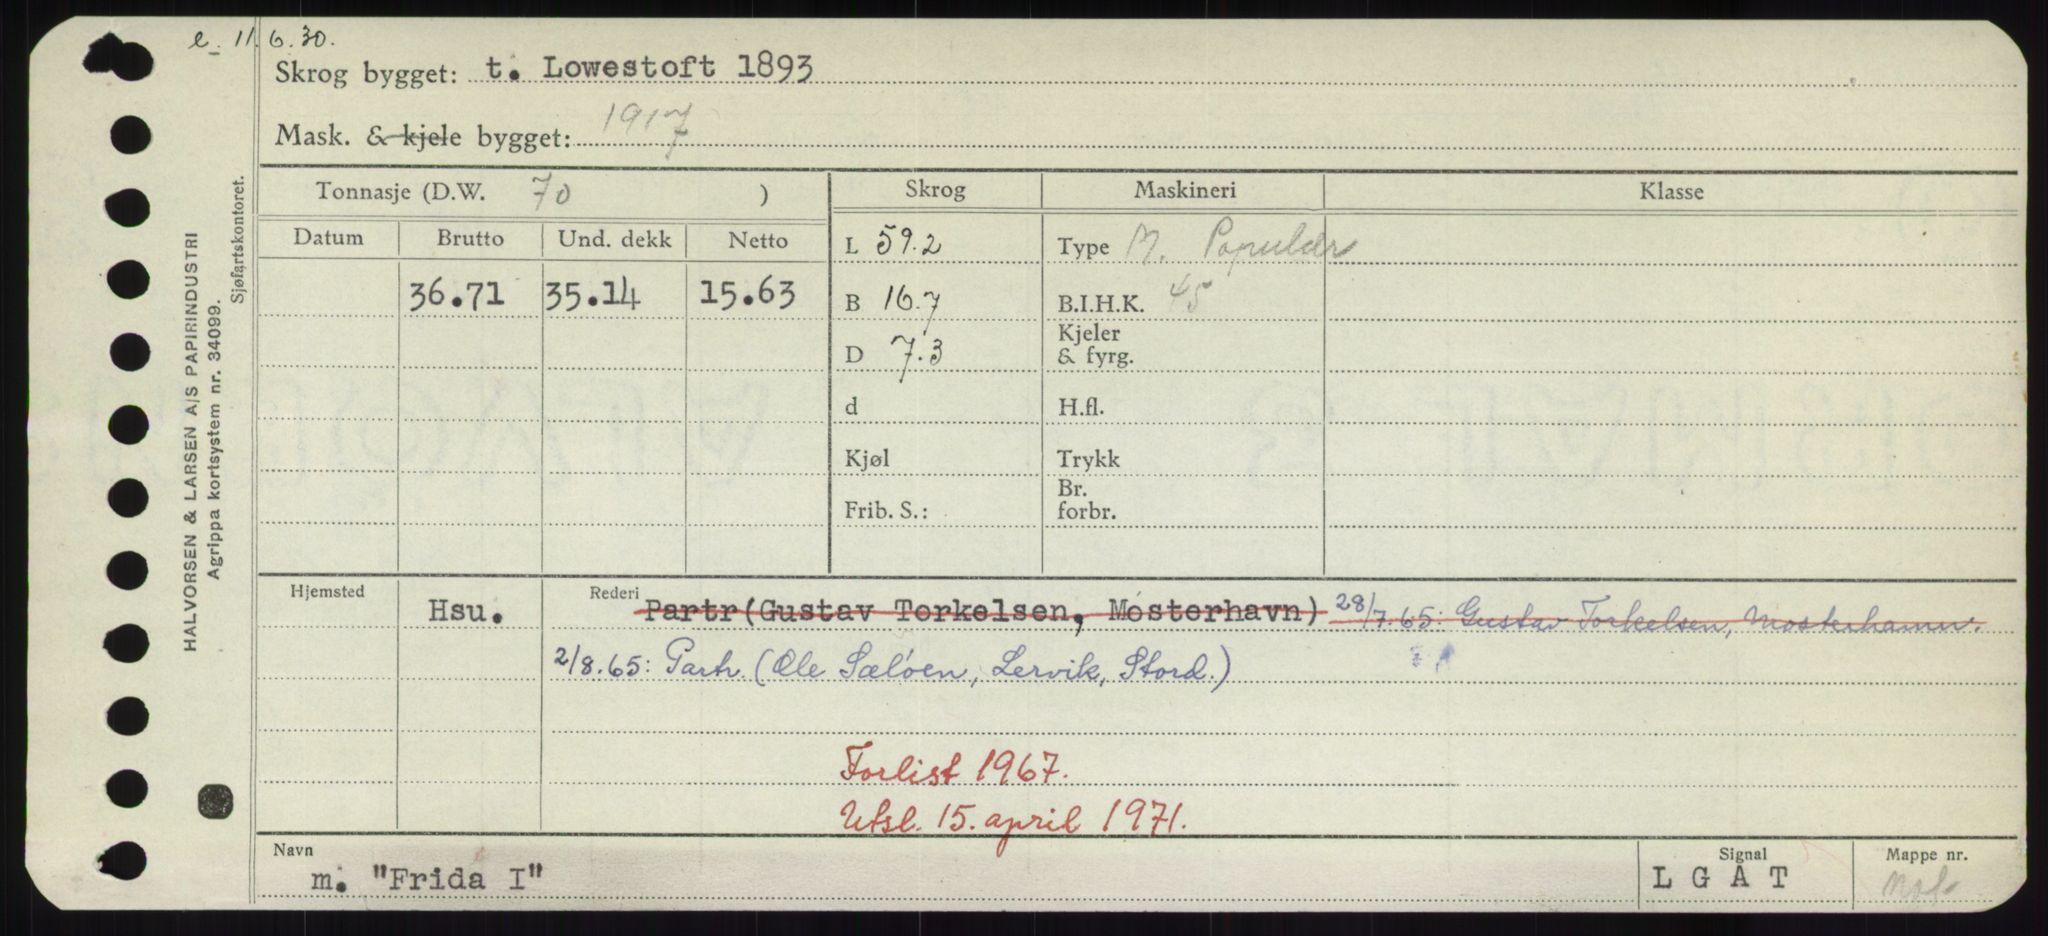 e. 11.6.30.
Skrog bygget: t. Lowestoft 1893
Mask. & kjele bygget: 1917
Tonnasje (D.W. 70 )
Skrog
Maskineri
Klasse
Datum
Brutto
Und. dekk
Netto
36.71
35.14
15.63
L 59.2
B 16.7
D 7.3
d
Kjøl
Frib. S.:
Type M. Populær
B.I.H.K. 45
Kjeler
& fyrg.
H.fl.
Trykk
Br.
forbr.
Hjemsted
Hsu.
Rederi Partr(Gustav Torkelsen, Mosterhavn) 28/7.65: Gustav Torkelsen, Mosterhamn.
2/8.65: Partr. (Ole Sæløen, Lervik, Stord.)
Forlist 1967.
Utsl. 15. april 1971.
Navn
m. "Frida I"
Signal
L G A T
Mappe nr.
HALVORSEN & LARSEN A/S PAPIRINDUSTRI
Agrippa kortsystem nr. 34099.
Sjøfartskontoret.